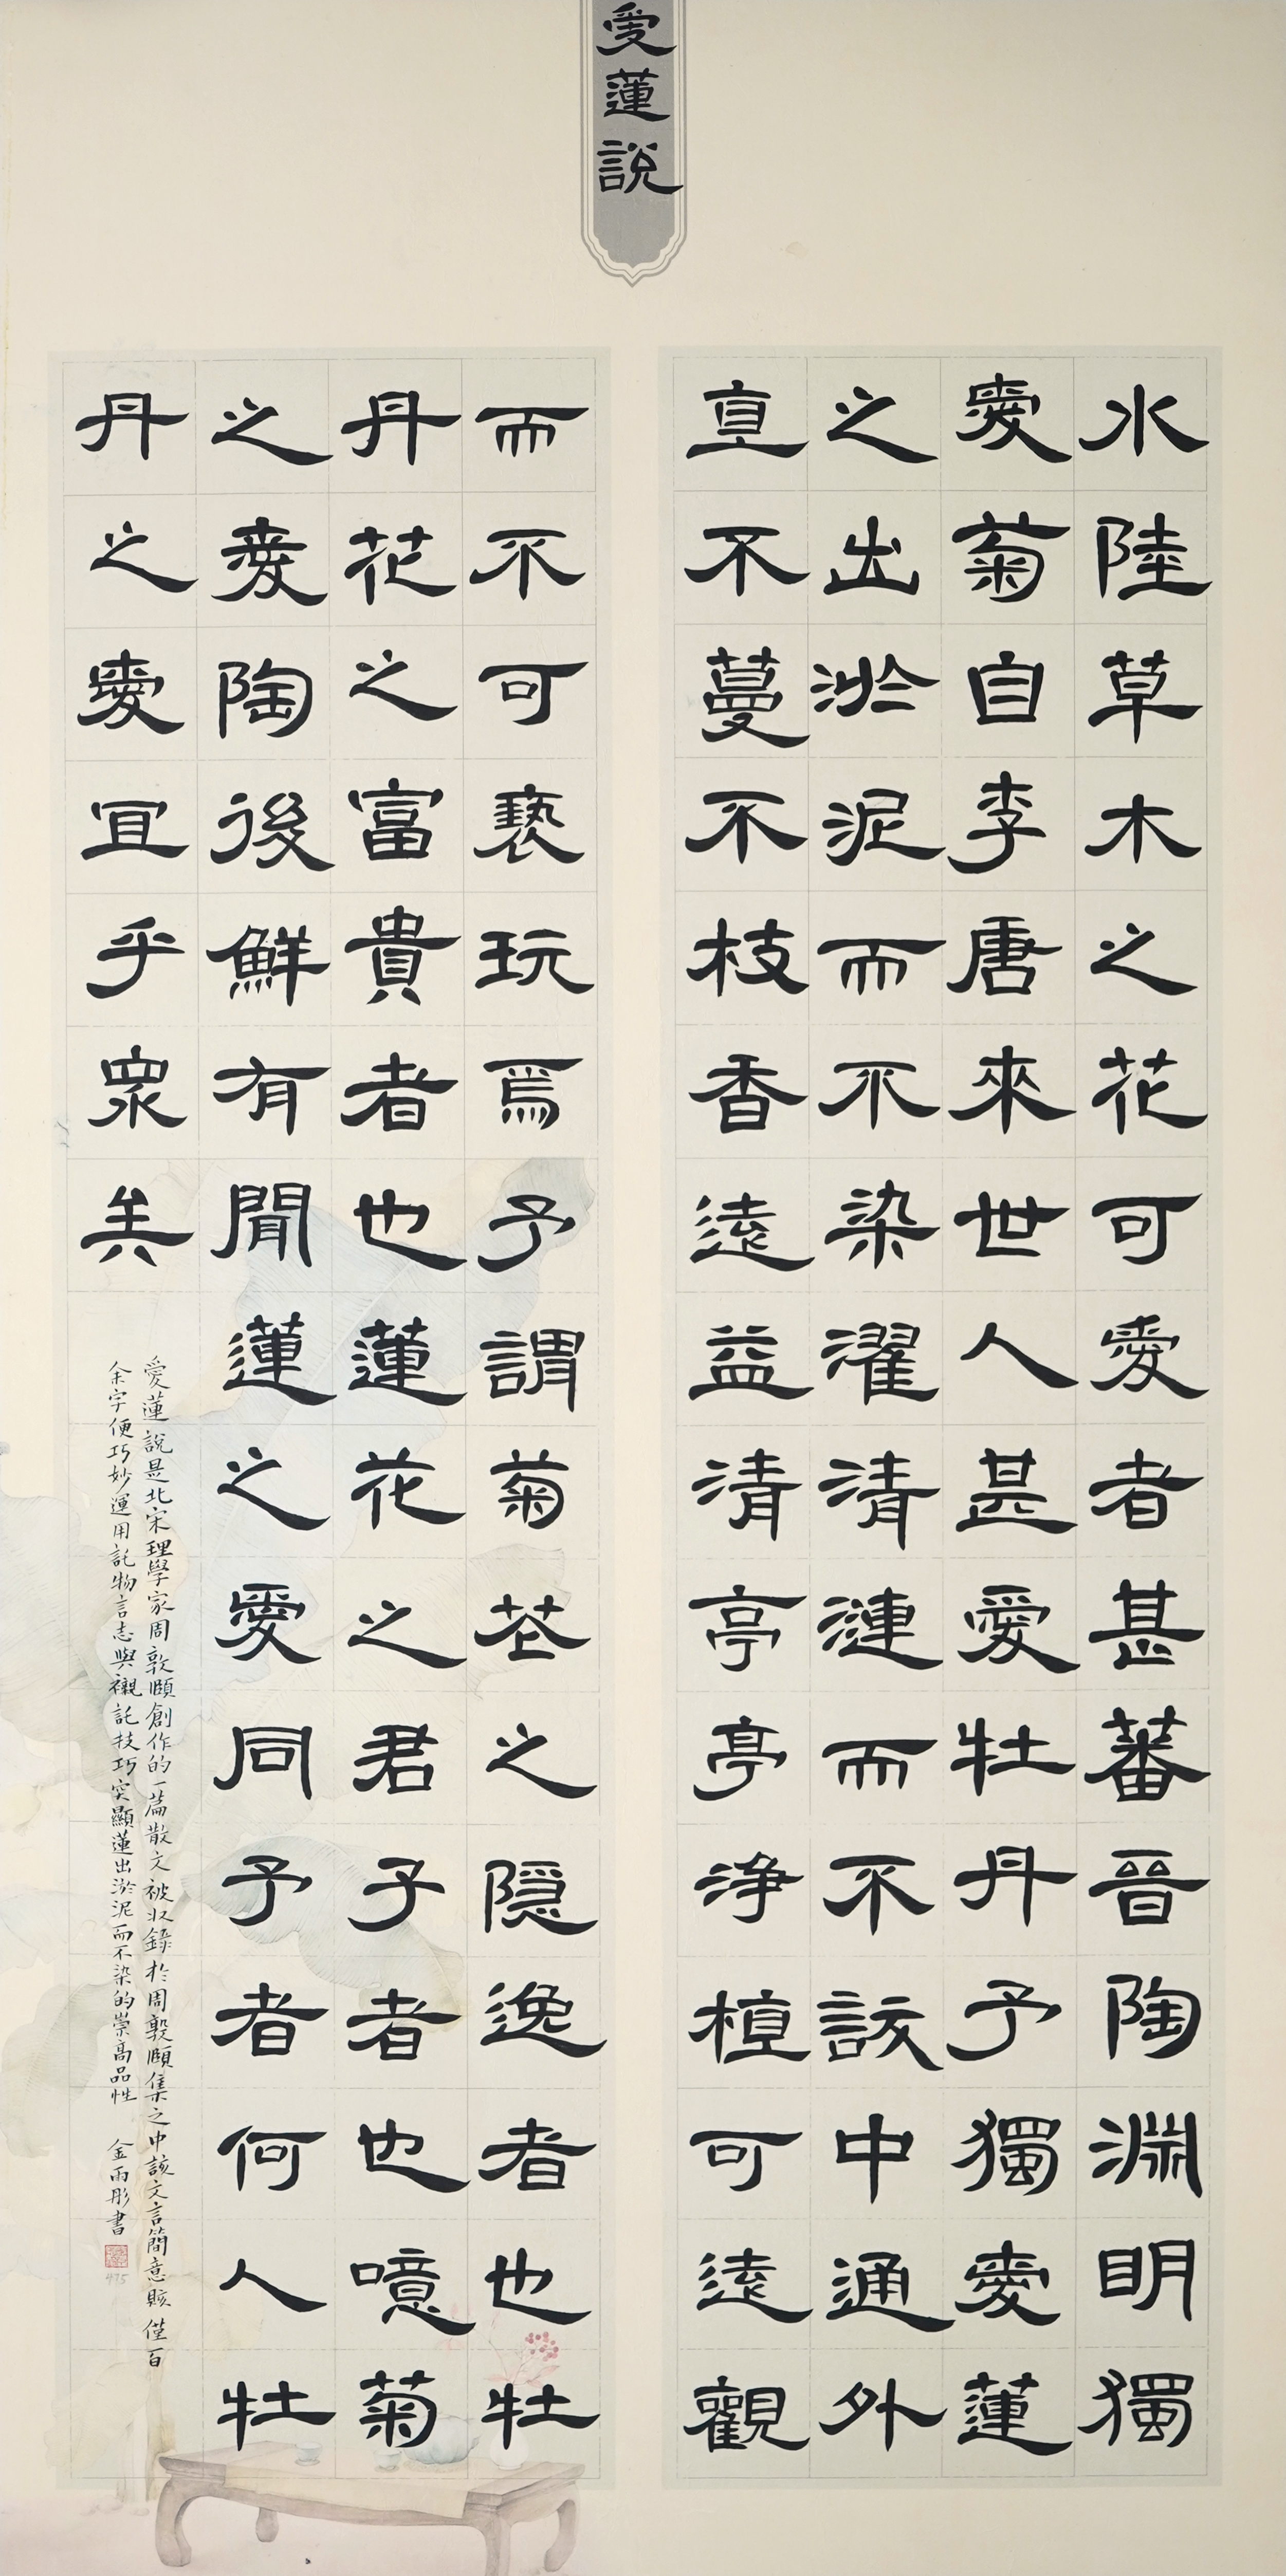 愛蓮說
水陸草木之花可愛者甚蕃晉陶淵明獨
愛菊自李唐來世人甚愛牡丹予獨愛蓮
之出淤泥而不染濯清漣而不該中通外
直不蔓不枝香遠益清亭亭净植可遠觀
而不可褻玩焉予謂菊花之隱逸者也牡
丹花之富貴者也蓮花之君子者也噫菊
之愛陶後鮮有聞蓮之愛同予者何人牡
丹之愛宜乎眾矣
愛蓮說是北宋理學家周敦頤創作的一篇散文被収錄於周敦頤集之中該文言簡意賅僅百
余字便巧妙運用託物言志與襯託技巧突顯蓮出淤泥而不染的崇高品性 金雨彤書
475